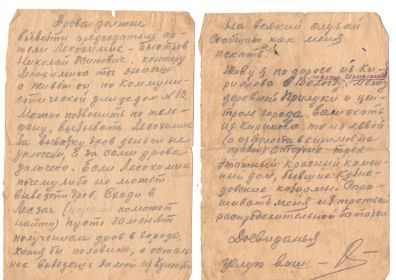 Дрова должен
вывезти председатель ар-
тели Лесохимик - Быстров
Николай Осипович, контору
Лесохимик ты знаешь
а живёт он по Коммуни-
стической дом № 10.
Можно позвонить по теле-
фону, вызвать Лесохимик
За вывозку дров деньги не
уплочены, а за сами дрова
уплочено. Если Лесохимик
почему либо не может
вывезти дров, сходи в
Лесзаг поможет
найти) пусть заменят
получением дров в городе,
хотя бы половину, а осталь-
ное вывезешь зимой из
На всякий случай
сообщаю как меня
искать.
Живу я по дороге из Ки-
риллова в Вологду, между
деревней Прилуки и цен-
тром города. Если ехать
из Кириллова, то на левой
стороне трёх
этажный красный камен-
ный дом, бывшие Кузне-
цовские казармы. Спра-
шивать меня из третьей
распределительной батареи
Досвиданья
целую вас -